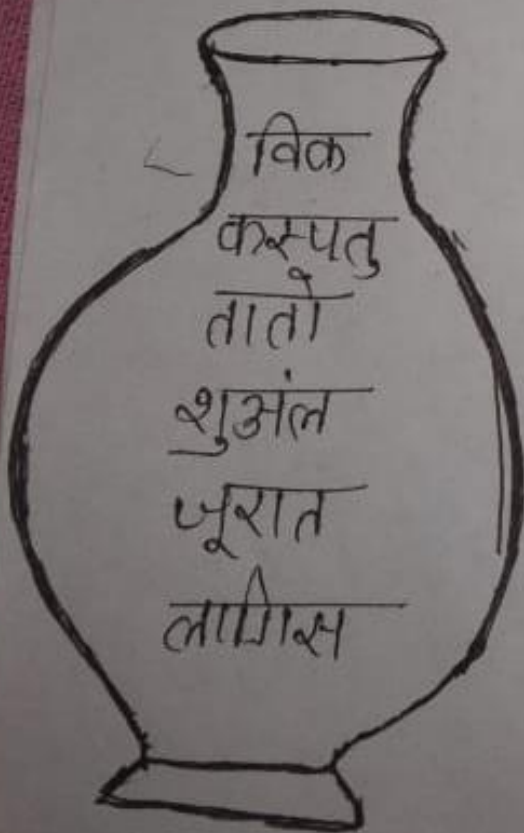 विक
कस्पतु
तातो
शुअंल
जूरात
लागिस